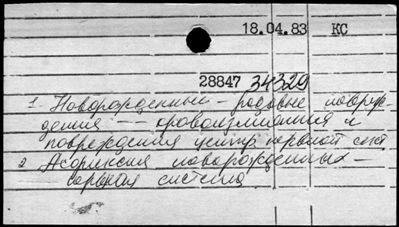 18.04.83 КС
28847 34329
1. Новорожденный - родовые повреж-
дения - кровоизлияния и
повреждения центр нервной сист
2 Асфиксия новорожденных -
нервная система